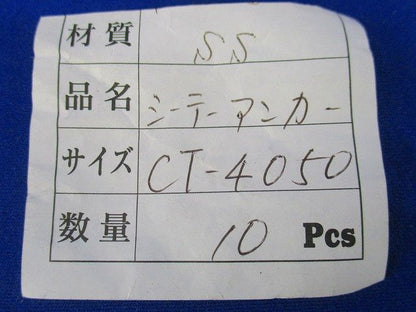 材質 SS
品名 シーテーアンカー
サイズ CT-4050
数量 10 Pcs